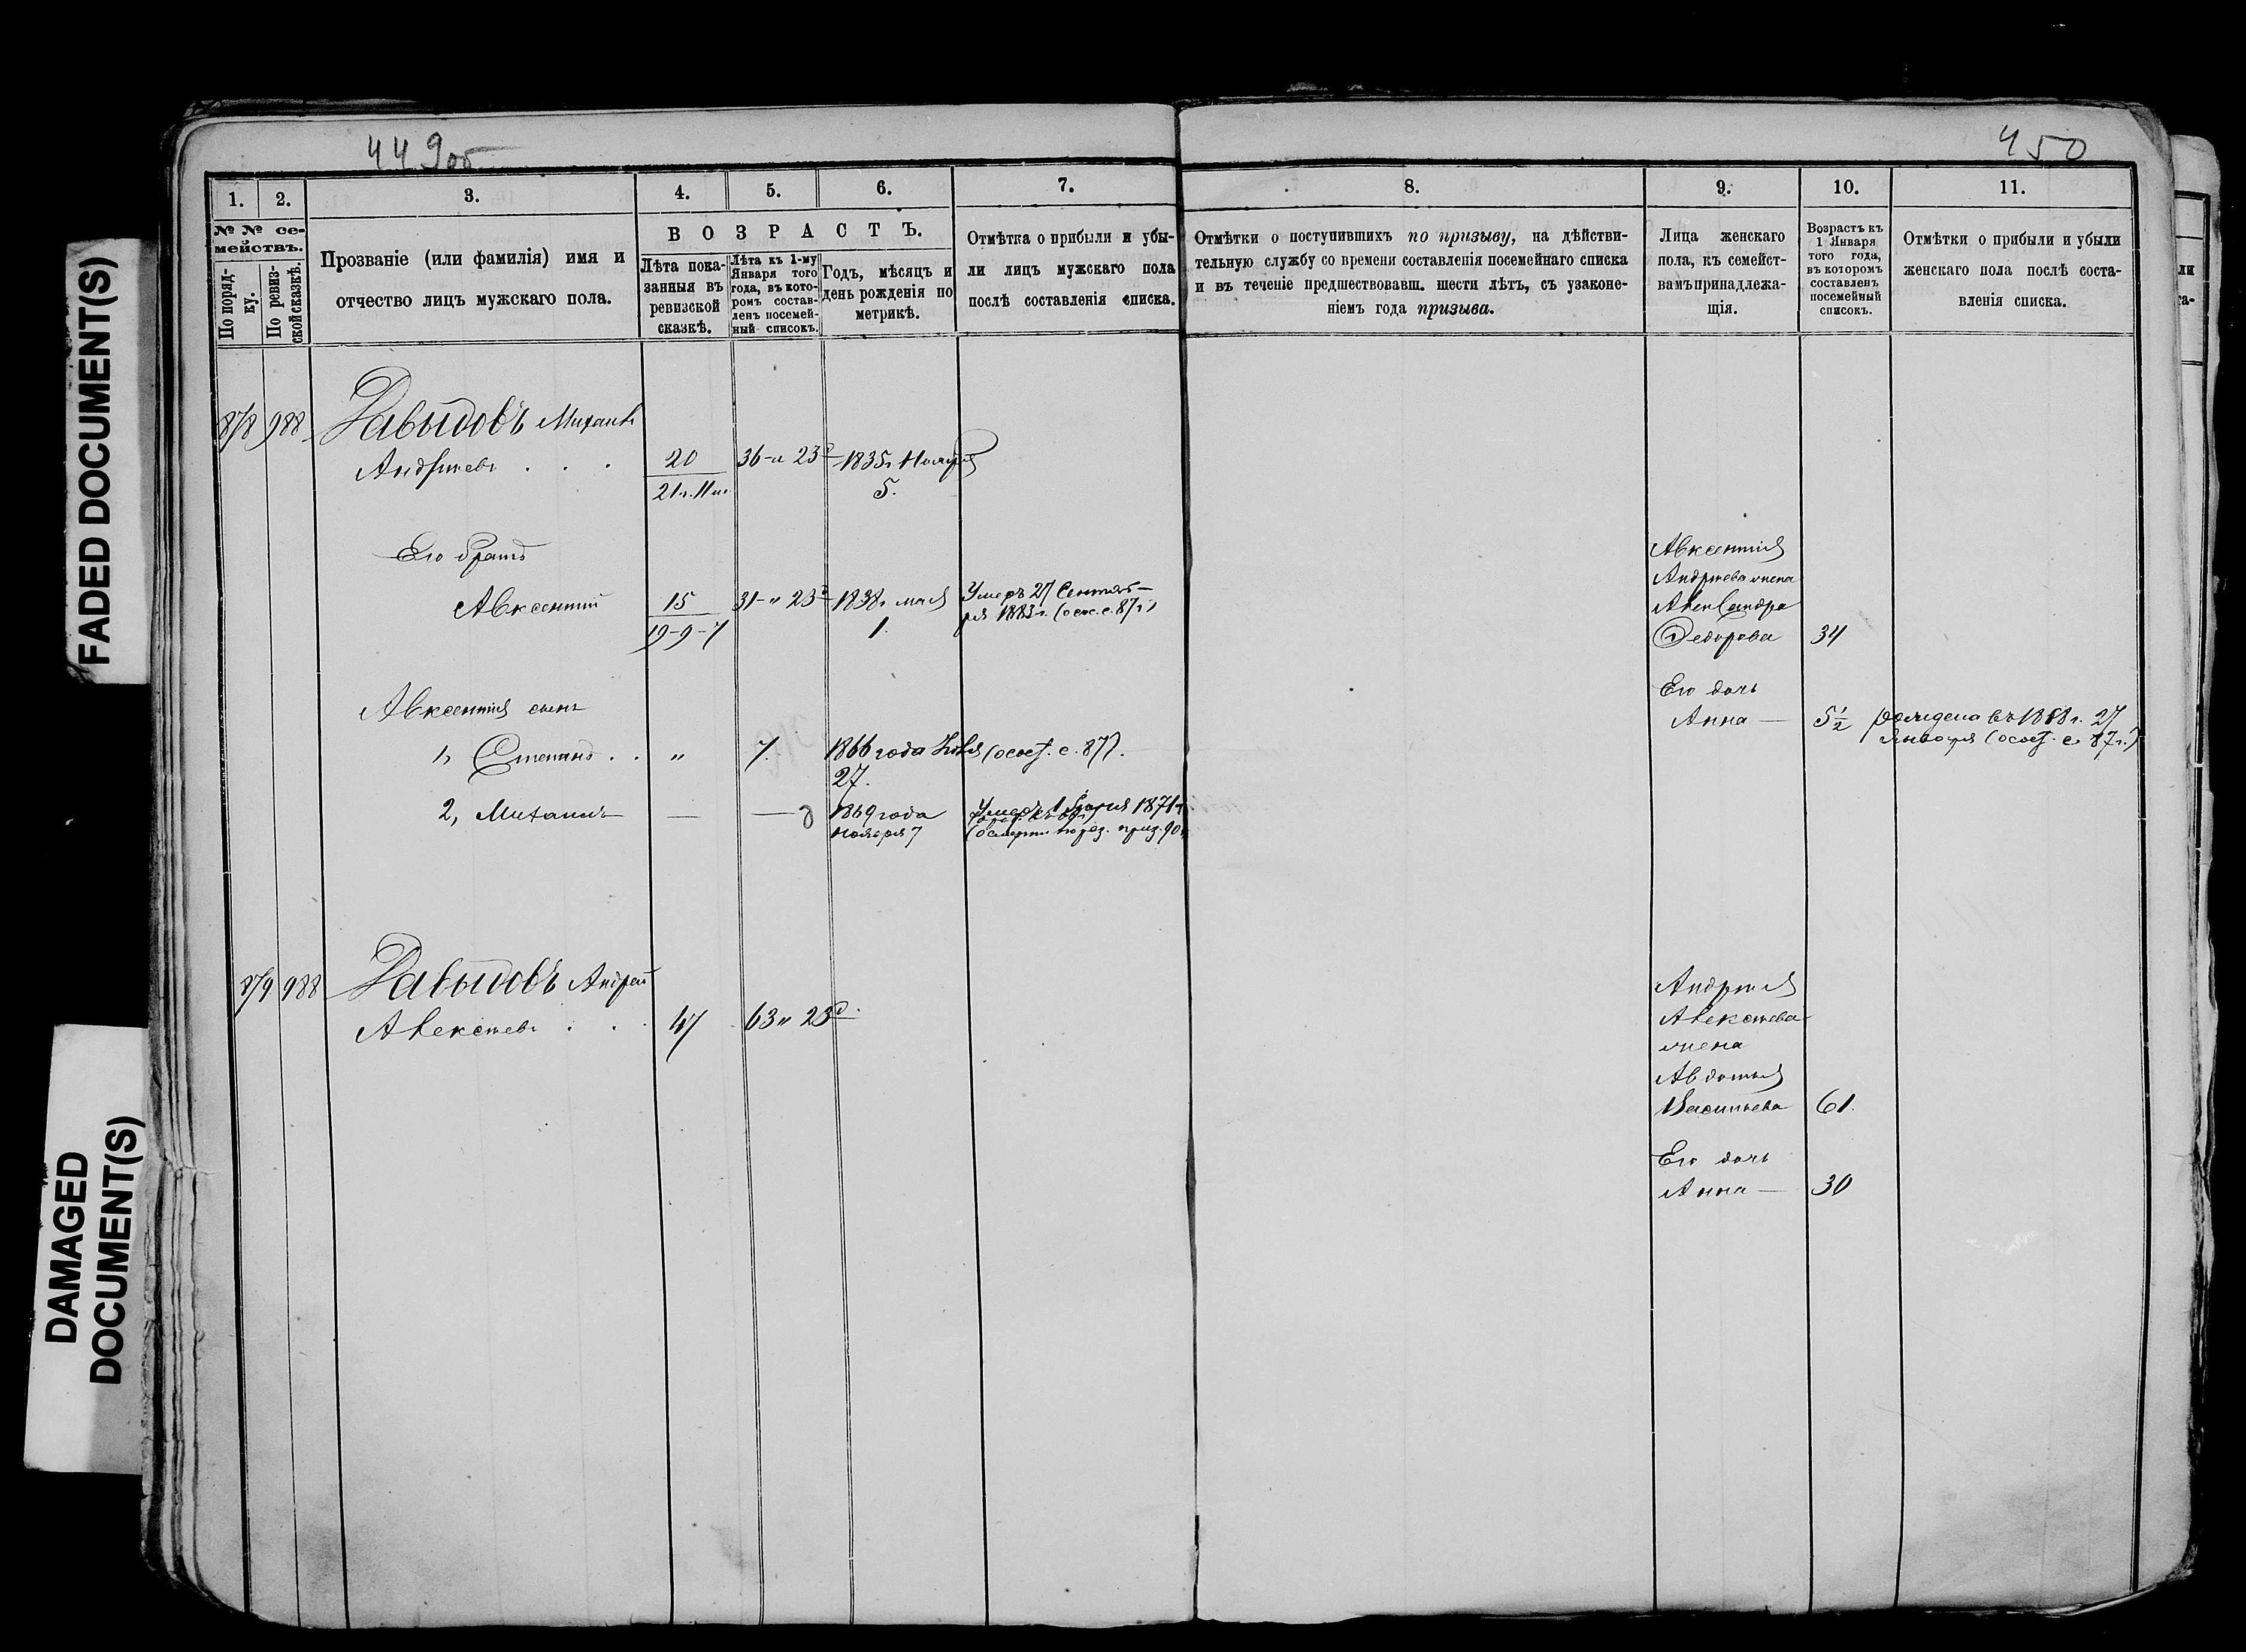 FADED DOCUMENT(S)
DAMAGED
DOCUMENT(S)
449 об
450
1.
2.
3.
4.
5.
6.
7.
8.
9.
10.
11.
№ № се-
мействъ.
По поряд-
ку.
По ревиз-
ской сказкѣ.
Прозваніе (или фамилія) имя и
отчество лицъ мужскаго пола.
ВОЗРАСТЪ.
Лѣта пока-
занныя въ
ревизской
сказкѣ.
Лѣта къ 1-му
Января того
года, въ кото-
ромъ состав-
ленъ посемей-
ный списокъ.
Годъ, мѣсяцъ и
день рожденія по
метрикѣ.
Отмѣтка о прибыли и убы-
ли лицъ мужскаго пола
послѣ составленія списка.
Отмѣтки о поступившихъ по призыву, на дѣйстви-
тельную службу со времени составленія посемейнаго списка
и въ теченіе предшествовавш. шести лѣтъ, съ узаконе-
ніемъ года призыва.
Лица женскаго
пола, къ семейст-
вамъ принадлежа-
щія.
Возрастъ къ
1 Января
того года,
въ которомъ
составленъ
посемейный
списокъ.
Отмѣтки о прибыли и убыли
женскаго пола послѣ соста-
вленія списка.
878 988 Давыдовъ Михаилъ
Андреевъ . . . 20 36 - и 23 д 1835 г. Ноября
21 л. 11 м. 5.
Его братъ
Авксентій 15 31 - " 23 д 1838 г. мая Умеръ 27 Сентяб-
19-9-7 1. ря 1883 г.
Авксентія
Андреева жена
Александра
Федорова 34
Авксентія сынъ
1, Степанъ . . " 7. 1866 года
27.
2, Михаилъ — — 1869 года Умеръ 1871 г.
Ноября 7
Его дочь
Анна — 5½ рождена въ 1868 г. 27
Января
879 988 Давыдовъ Андрей
Алексѣевъ . . . 47 63 " 23 д.
Андрея
Алексѣева
жена
Авдотья
Васильева 61.
Его дочь
Анна — 30